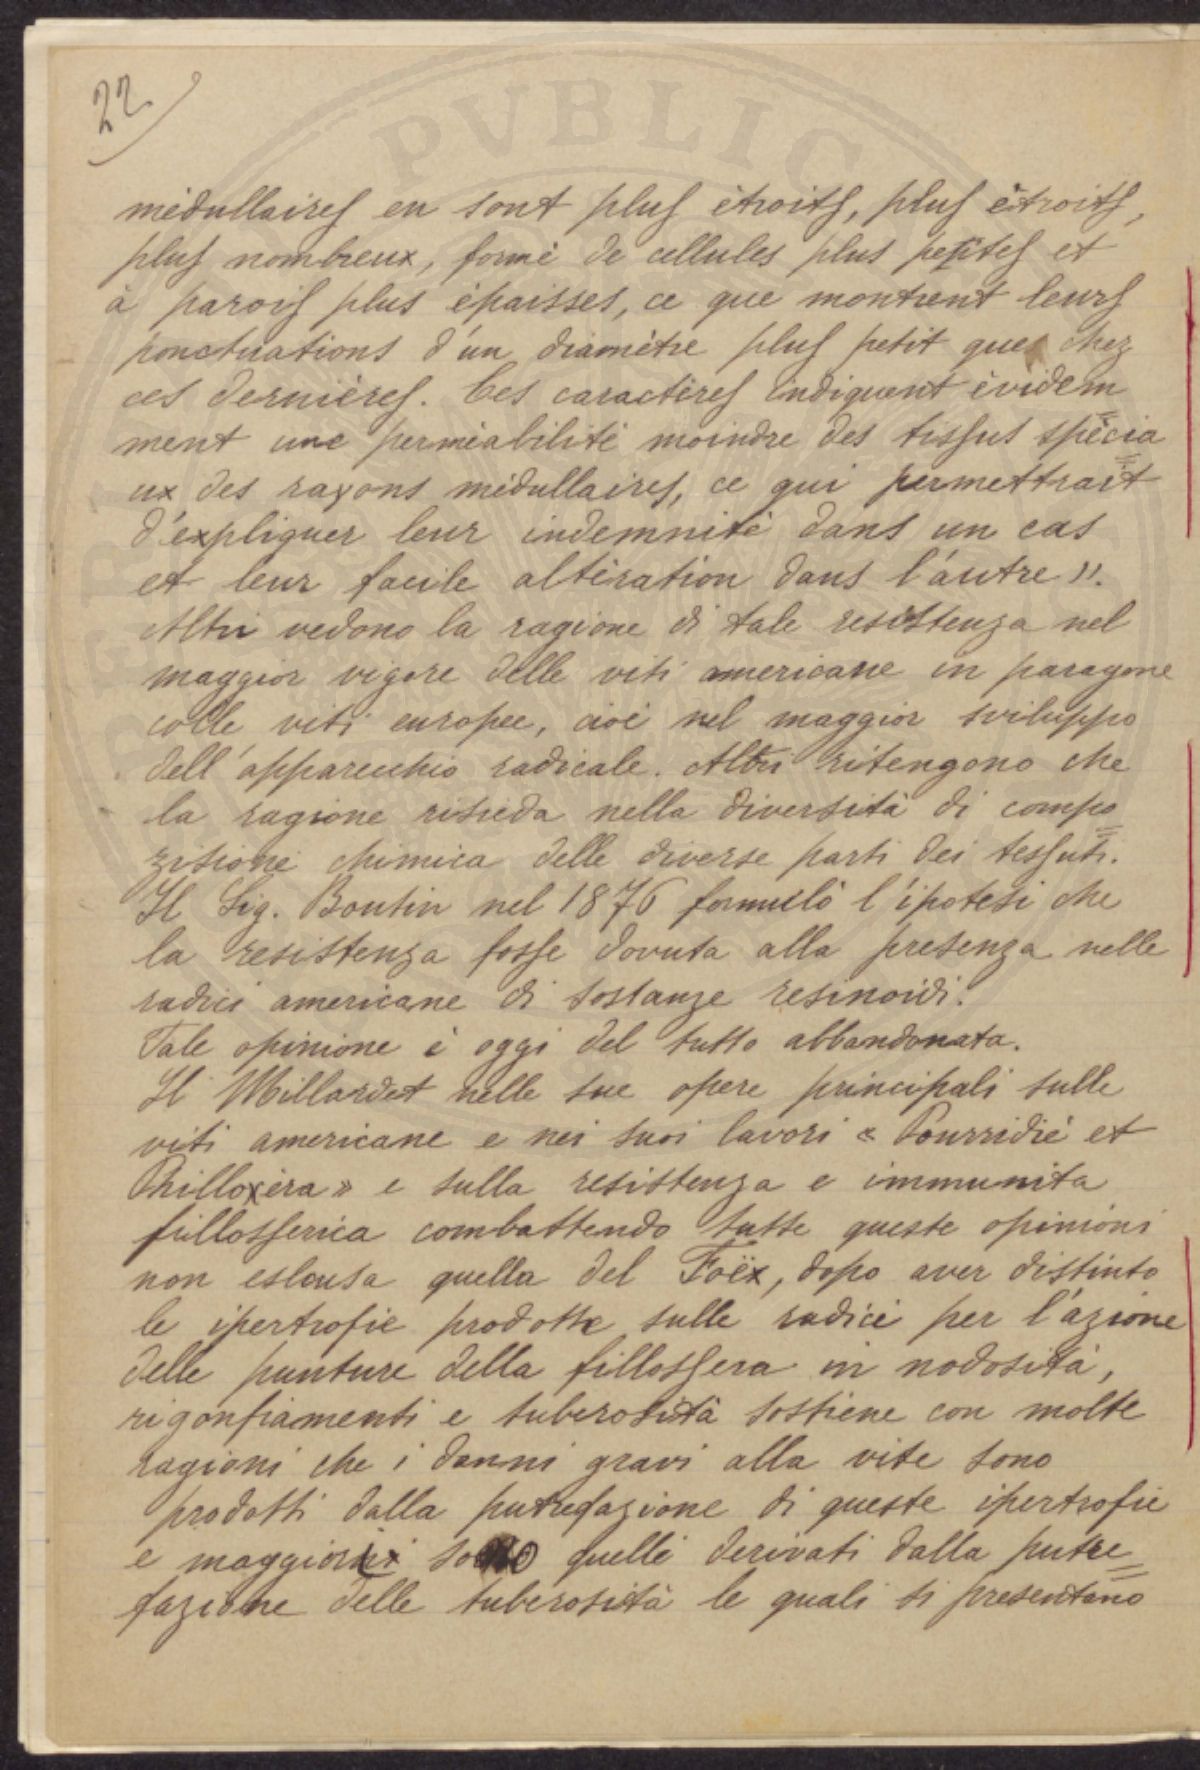 22
PVBLIC
médullaires en sont plus étroits, plus étroits,
plus nombreux, formé de cellules plus petites et
à parois plus épaisses, ce que montrent leurs
ponctuations d'un diamètre plus petit que chez
ces dernières. Ces caractères indiquent évidem
ment une perméabilité moindre des tissus spècia
ux des rayons médullaires, ce qui permettrait
d'expliquer leur indemnité dans un cas
et leur facile altération dans l'autre ».
Altri vedono la ragione di tale resistenza nel
maggior vigore delle viti americane in paragone
colle viti europee, cioè nel maggior sviluppo
dell'apparecchio radicale. Altri ritengono che
la ragione risieda nella diversità di compo
zisione chimica delle diverse parti dei tessuti.
Il Sig. Boutin nel 1876 formulò l'ipotesi che
la resistenza fosse dovuta alla presenza nelle
radici americane di sostanze resinoidi.
Tale opinione è oggi del tutto abbandonata.
Il Millardet nelle sue opere principali sulle
viti americane e nei suoi lavori « Pourridié et
Philloxèra » e sulla resistenza e immunita
fillosserica combattendo tutte queste opinioni
non esclusa quella del Foëx, dopo aver distinto
le ipertrofie prodotte sulle radici per l'azione
delle punture della fillossera in nodosità,
rigonfiamenti e tuberosità sostiene con molte
ragioni che i danni gravi alla vite sono
prodotti dalla putrefazione di queste ipertrofie
e maggiori sono quelli derivati dalla putre
fazione delle tuberosità le quali si presentano